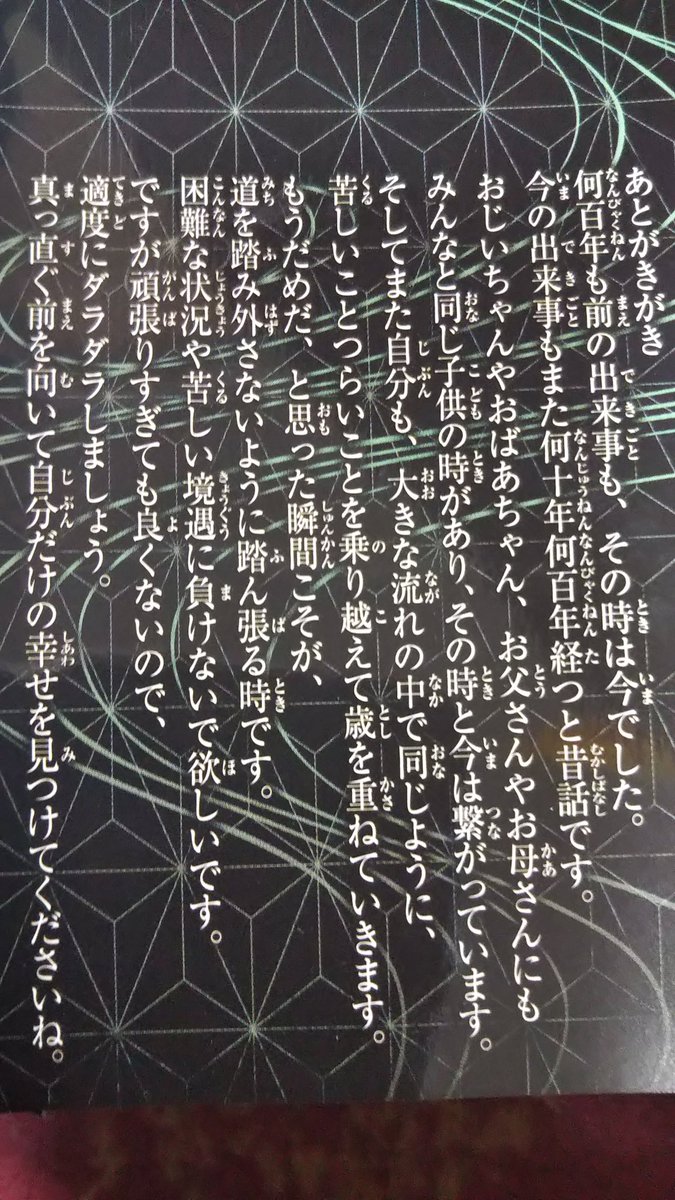 あとがきがき
何百年も前の出来事も、その時は今でした。
今の出来事もまた何十年何百年経つと昔話です。
おじいちゃんやおばあちゃん、お父さんやお母さんにも
みんなと同じ子供の時があり、その時と今は繋がっています。
そしてまた自分も、大きな流れの中で同じように、
苦しいことつらいことを乗り越えて歳を重ねていきます。
もうだめだ、と思った瞬間こそが、
道を踏み外さないように踏ん張る時です。
困難な状況や苦しい境遇に負けないで欲しいです。
ですが頑張りすぎても良くないので、
適度にダラダラしましょう。
真っ直ぐ前を向いて自分だけの幸せを見つけてくださいね。